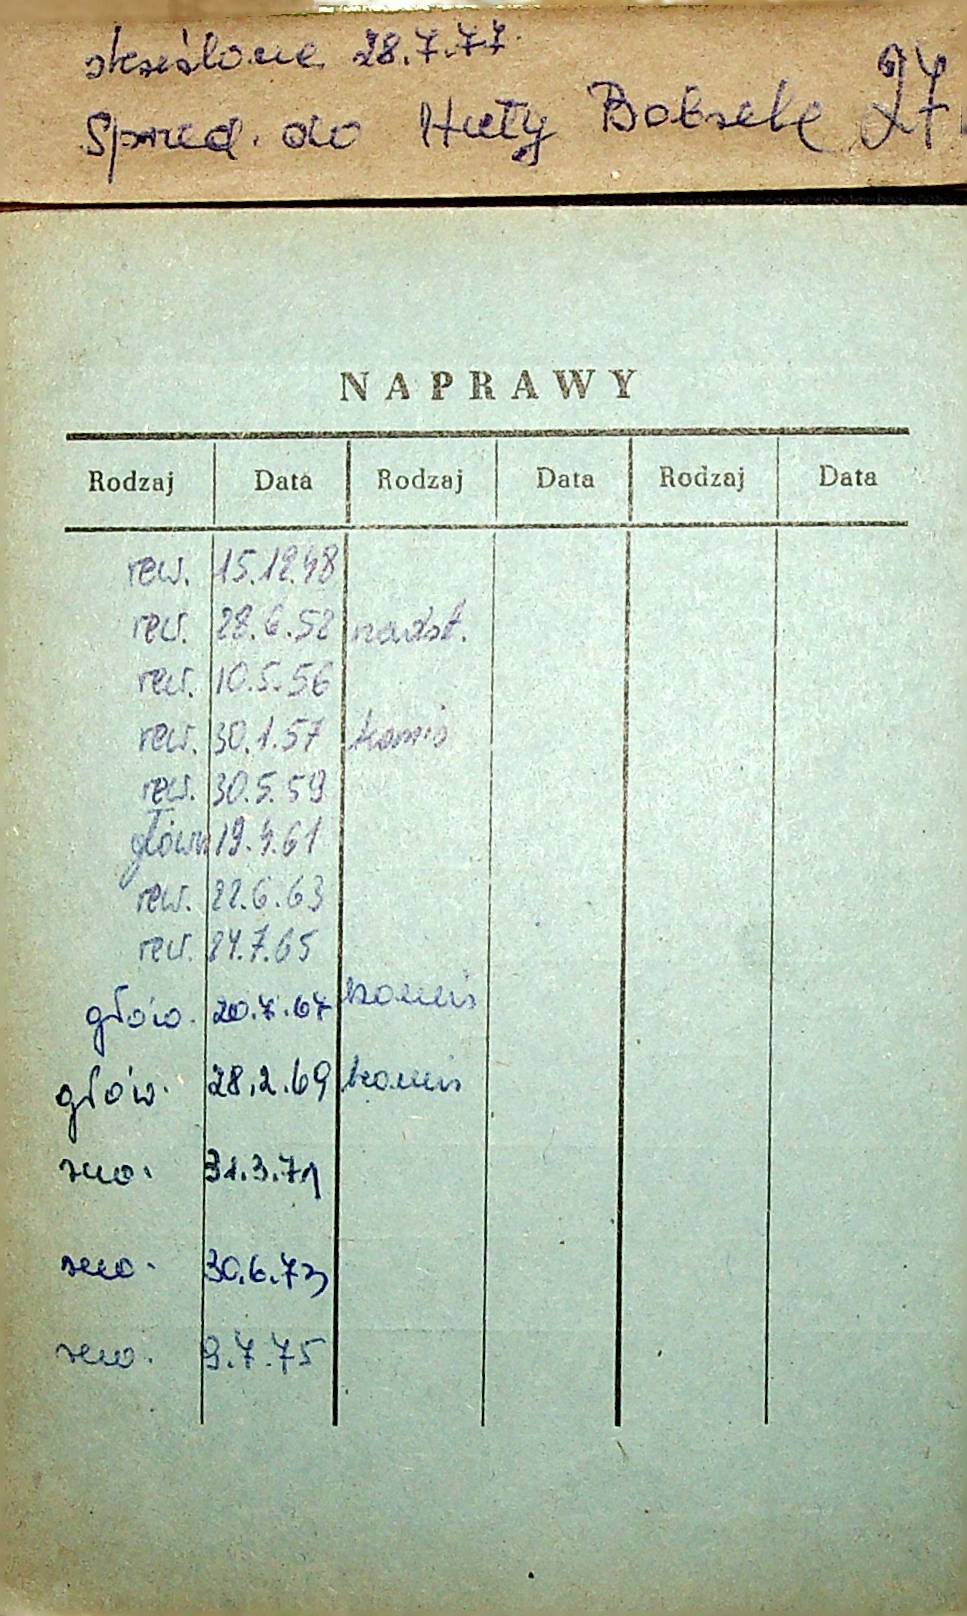 skreślone 28.7.77.
Sprzed. do Huty Bobrek 27
NAPRAWY
Rodzaj Data Rodzaj Data Rodzaj Data
rew. 15.12.48
rew. 28.6.52 nadst.
rew. 10.5.56
rew. 30.1.57 komis
rew. 30.5.59
główn 19.4.61
rew. 22.6.63
rew. 24.7.65
głów. 20.7.67 komis
głów. 28.2.69 komis
rew. 31.3.71
rew. 30.6.73
rew. 9.7.75